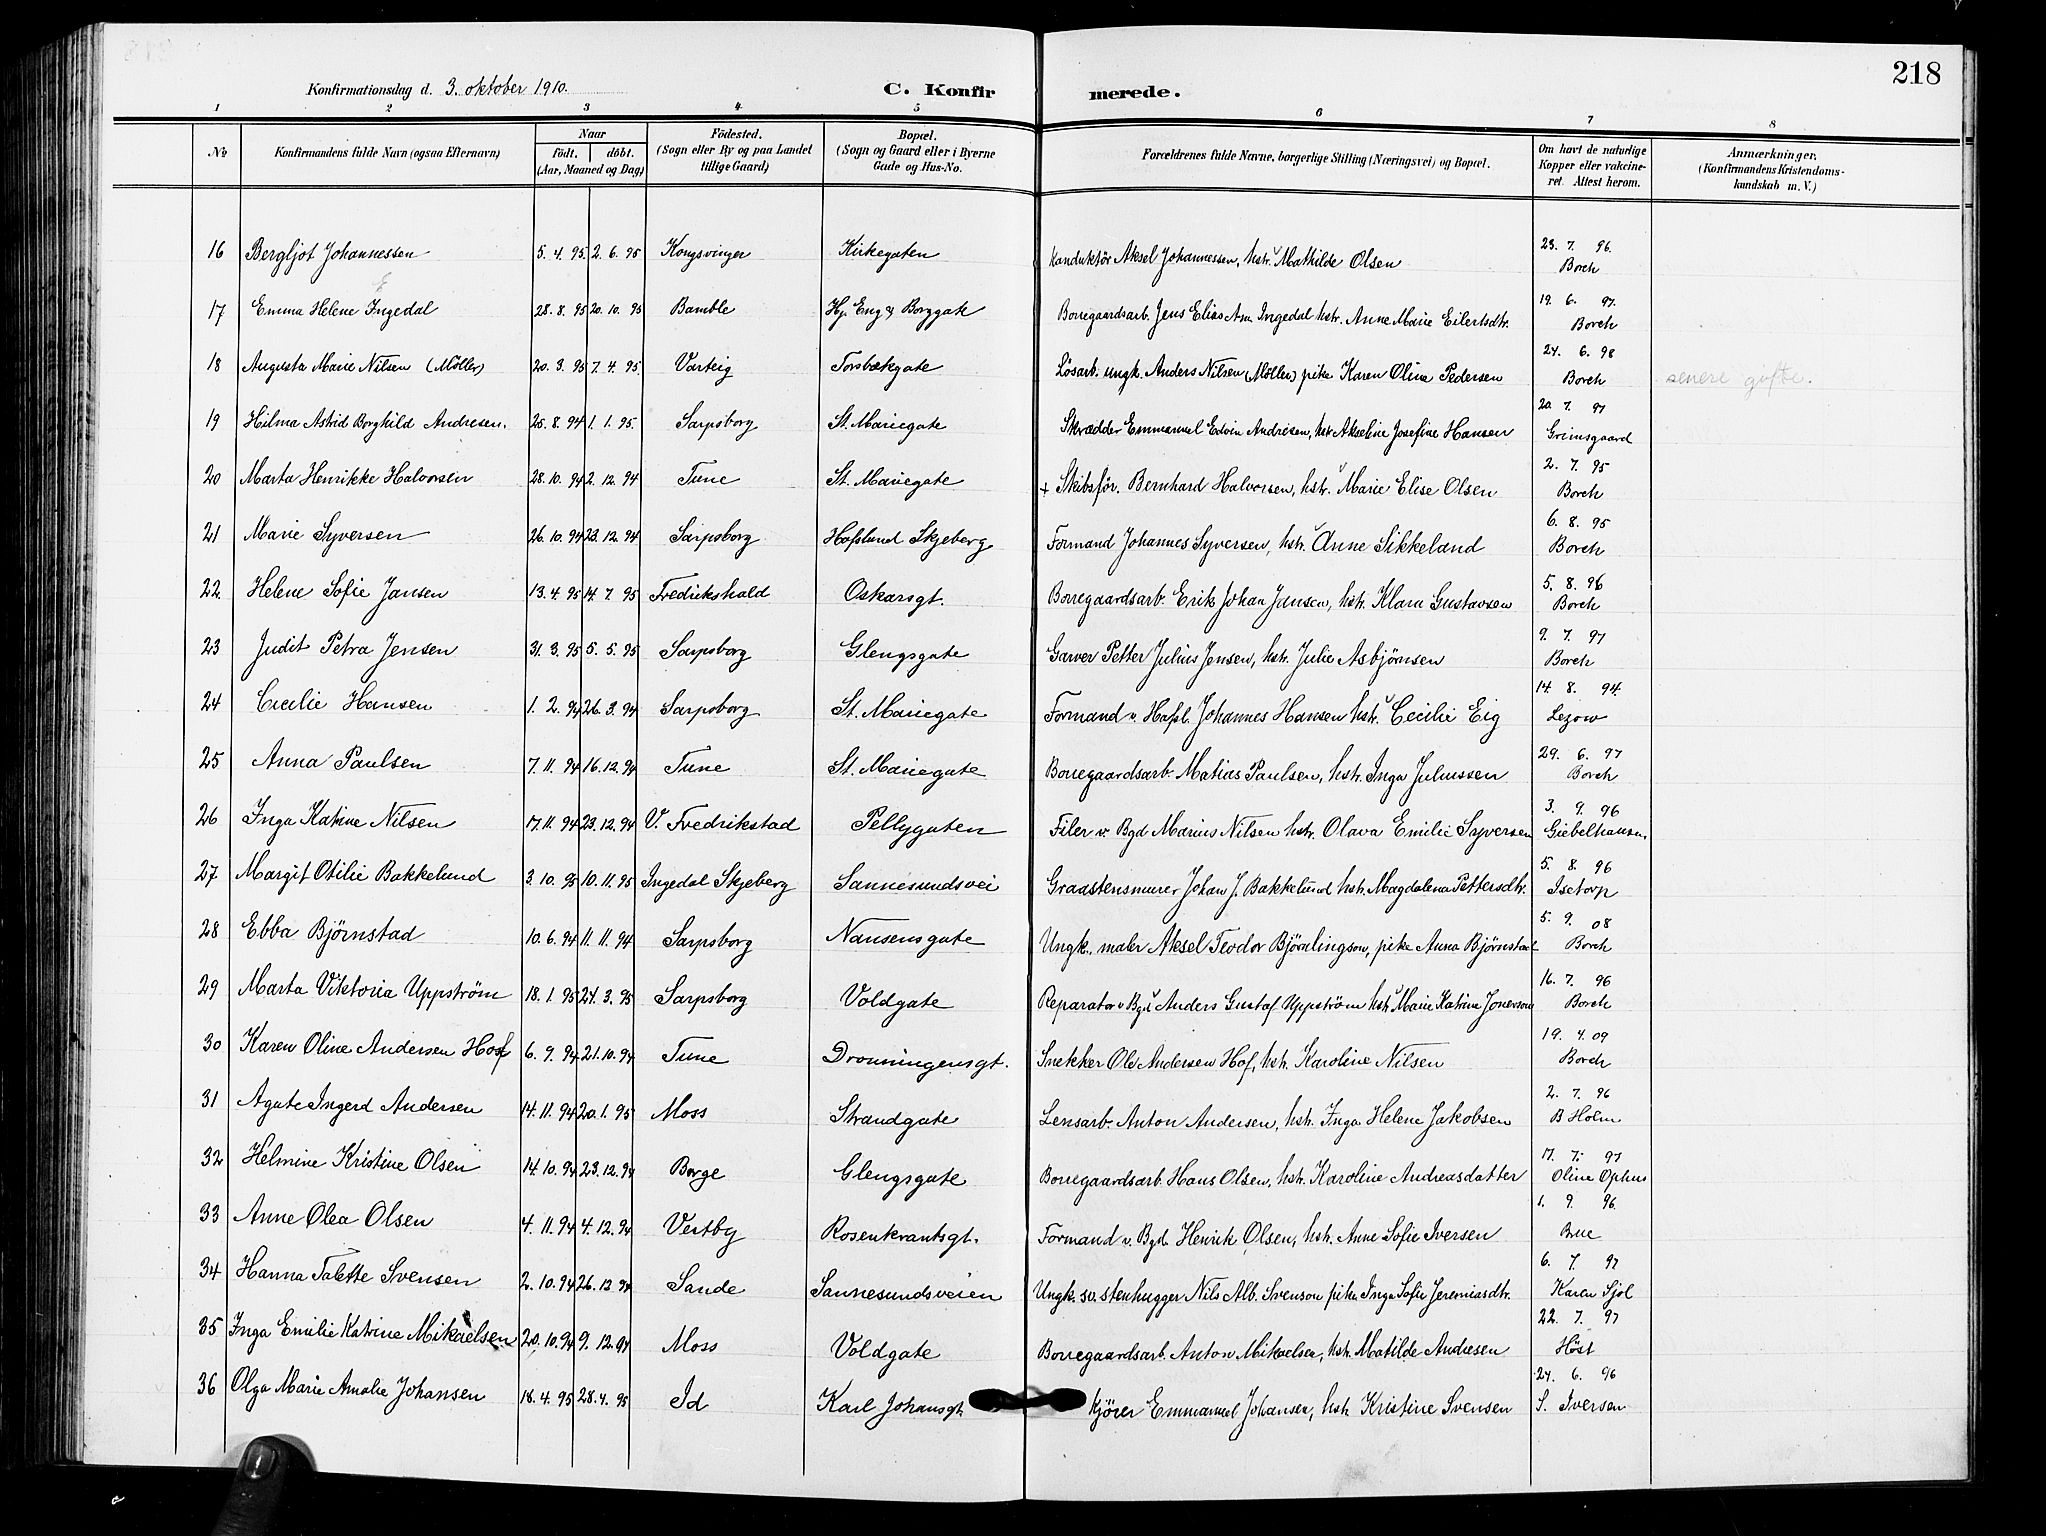 218
Konfirmationsdag d. 3. oktober 1910.
C. Konfirmerede.
1 2 3 4 5 6 7 8
No
Konfirmandens fulde Navn (ogsaa Efternavn)
Naar
födt. döbt.
(Aar, Maaned og Dag)
Födested.
(Sogn eller By og paa Landet
tillige Gaard)
Bopæl.
(Sogn og Gaard eller i Byerne
Gade og Hus-No.
Forældrenes fulde Navne, borgerlige Stilling (Næringsvei) og Bopæl.
Om havt de naturlige
Kopper eller vakcine-
ret. Attest herom.
Anmærkninger.
(Konfirmandens Kristendoms-
kundskab m. V.)
16 Bergljot Johannessen 5. 4. 95 2. 6. 95 Kongsvinger Kirkegaten Konduktör Aksel Johannessen, hstr. Mathilde Olsen 23. 7. 96 Borch
17 Emma Helene Ingedal 28. 8. 95 20. 10. 95 Bamble Hj. Eng & Borggate Borregaardsarb. Jens Elias Ingedal hstr. Anne Marie Eilertsdtr. 19. 6. 97. Borch
18 Augusta Marie Nilsen (Möller) 20. 3. 95 7. 4. 95. Varteig Torsbækgate Lösarb. ungk. Anders Nilsen (Möller) pike Karen Oline Pedersen 24. 6. 98 Borch senere gifte.
19 Hilma Astrid Borghild Andresen. 25. 8. 94 1. 1. 95. Sarpsborg St. Mariegate Skrædder Emmanuel Edvin Andresen, hstr. Akseline Josefine Hansen 20. 7. 97 Grimsgaard
20 Marta Henrikke Halvorsen 28. 10. 94 2. 12. 94 Tune St. Mariegate + Skibsför. Bernhard Halvorsen, hstr. Marie Elise Olsen 2. 7. 95 Borch
21 Marie Syversen 26. 10. 94 23. 12. 94 Sarpsborg Hafslund Skjeberg Formand Johannes Syversen, hstr. Anne Sikkeland 6. 8. 95 Borch
22. Helene Sofie Jansen 13. 4. 95 14. 7. 95 Fredrikshald Oskarsgt. Borregaardsarb. Erik Johan Jansen, hstr. Klara Gustavsen 5. 8. 96 Borch
23 Judit Petra Jensen 31. 3. 95 5. 5. 95 Sarpsborg Glengsgate Garver Petter Julius Jensen, hstr. Julie Asbjörnsen 9. 7. 97 Borch
24 Cecilie Hansen 1. 2. 94 26. 3. 94 Sarpsborg St. Mariegate Formand v. Hafsl. Johannes Hansen hstr. Cecilie Eig 14. 8. 94. Lezow
25 Anna Paulsen 7. 11. 94 16. 12. 94 Tune St. Mariegate Borregaardsarb. Matias Paulsen, hstr. Inga Juliussen 29. 6. 97 Borch
26 Inga Katrine Nilsen 17. 11. 94 23. 12. 94 V. Fredrikstad Pellygaten Filer v. Bgd Marius Nilsen hstr. Olava Emilie Syversen 3. 9. 96 Giebelhausen.
27 Margit Otilie Bakkelund 3. 10. 95 10. 11. 95 Ingedal Skjeberg Sannesundsvei Graastensmurer Johan J. Bakkelund hstr. Magdalena Pettersdtr. 5. 8. 96 Isetorp
28 Ebba Bjørnstad 10. 6. 94 11. 11. 94 Sarpsborg Nansensgate Ungk. maler Aksel Teodor Björnlingson, pike Anna Bjørnstad 5. 9. 08 Borch
29 Marta Viktoria Uppström 18. 1. 95 24. 3. 95 Sarpsborg Voldgate Reparatör v Bgd Anders Gustaf Uppström hstr. Marie Katrine Jonerson 16. 7. 96 Borch
30 Karen Oline Andersen Hof 6. 9. 94 21. 10. 94 Tune Dronningensgt. Snekker Ole Andersen Hof, hstr. Karoline Nilsen 19. 4. 09 Borch
31 Agate Ingerd Andersen 14. 11. 94 20. 1. 95 Moss Strandgate Lensarb. Anton Andersen, hstr. Inga Helene Jakobsen 2. 7. 96 B Holm
32 Helmine Kristine Olsen 14. 10. 94 23. 12. 94 Borge Glengsgate Borregaardsarb. Hans Olsen, hstr. Karoline Andreasdatter 17. 7. 97 Oline Ophus
33 Anne Olea Olsen 4. 11. 94 4. 12. 94 Vestby Rosenkrantsgt. Formand v. Bgd. Henrik Olsen, hstr. Anne Sofie Iversen 1. 9. 96 Bue
34 Hanna Talette Svensen 2. 10. 94 26. 12 94 Sande Sannesundsveien Ungk. sv. stenhugger Nils Alb. Svenson pike Inga Sofie Jeremiasdtr. 6. 7. 97 Karen Sjol
35 Inga Emilie Katrine Mikaelsen 20. 10. 94 9. 12. 94 Moss Voldgate Borregaardsarb. Anton Mikaelsen, hstr. Matilde Andresen 22. 7. 97 Höst
36 Olga Marie Amalie Johansen 18. 4. 95 28. 4. 95 Id Karl Johansgt. Kjörer Emmanuel Johansen, hstr. Kristine Svensen 24. 6. 96 S. Iversen